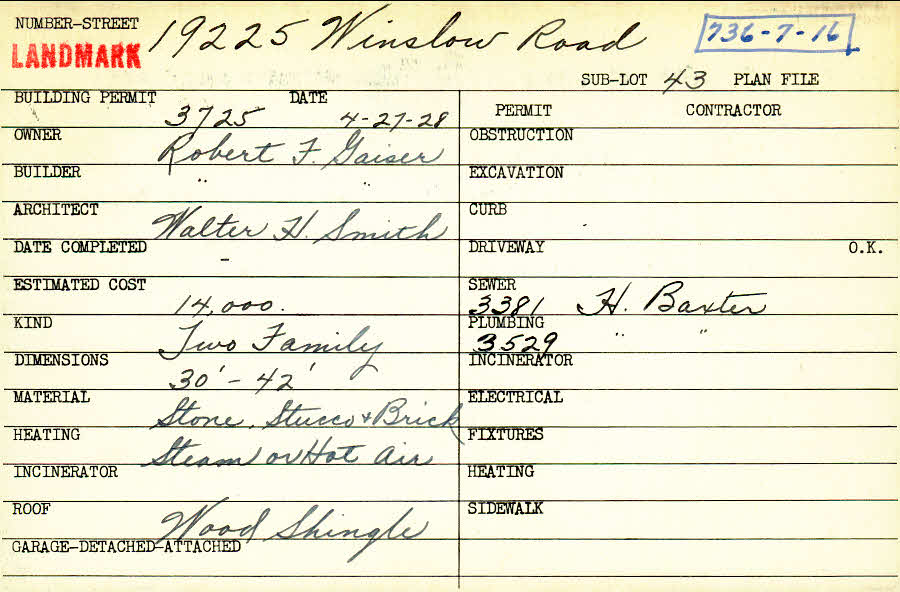 NUMBER-STREET 19225 Winslow Road 736-7-16
LANDMARK
SUB-LOT 43 PLAN FILE
BUILDING PERMIT 3725 DATE 4-27-28
PERMIT CONTRACTOR
OWNER Robert F. Gaiser
OBSTRUCTION
BUILDER " "
EXCAVATION
ARCHITECT Walter H. Smith
CURB
DATE COMPLETED -
DRIVEWAY O.K.
ESTIMATED COST 14,000.
SEWER 3381 H. Baxter
KIND Two Family
PLUMBING 3529 " "
DIMENSIONS 30' - 42'
INCINERATOR
MATERIAL Stone, Stucco & Brick
ELECTRICAL
HEATING Steam or Hot Air
FIXTURES
INCINERATOR
HEATING
ROOF Wood Shingle
SIDEWALK
GARAGE-DETACHED-ATTACHED